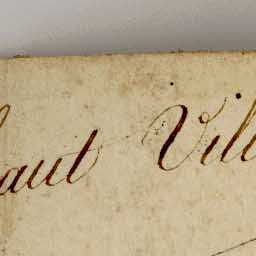 haut Vill